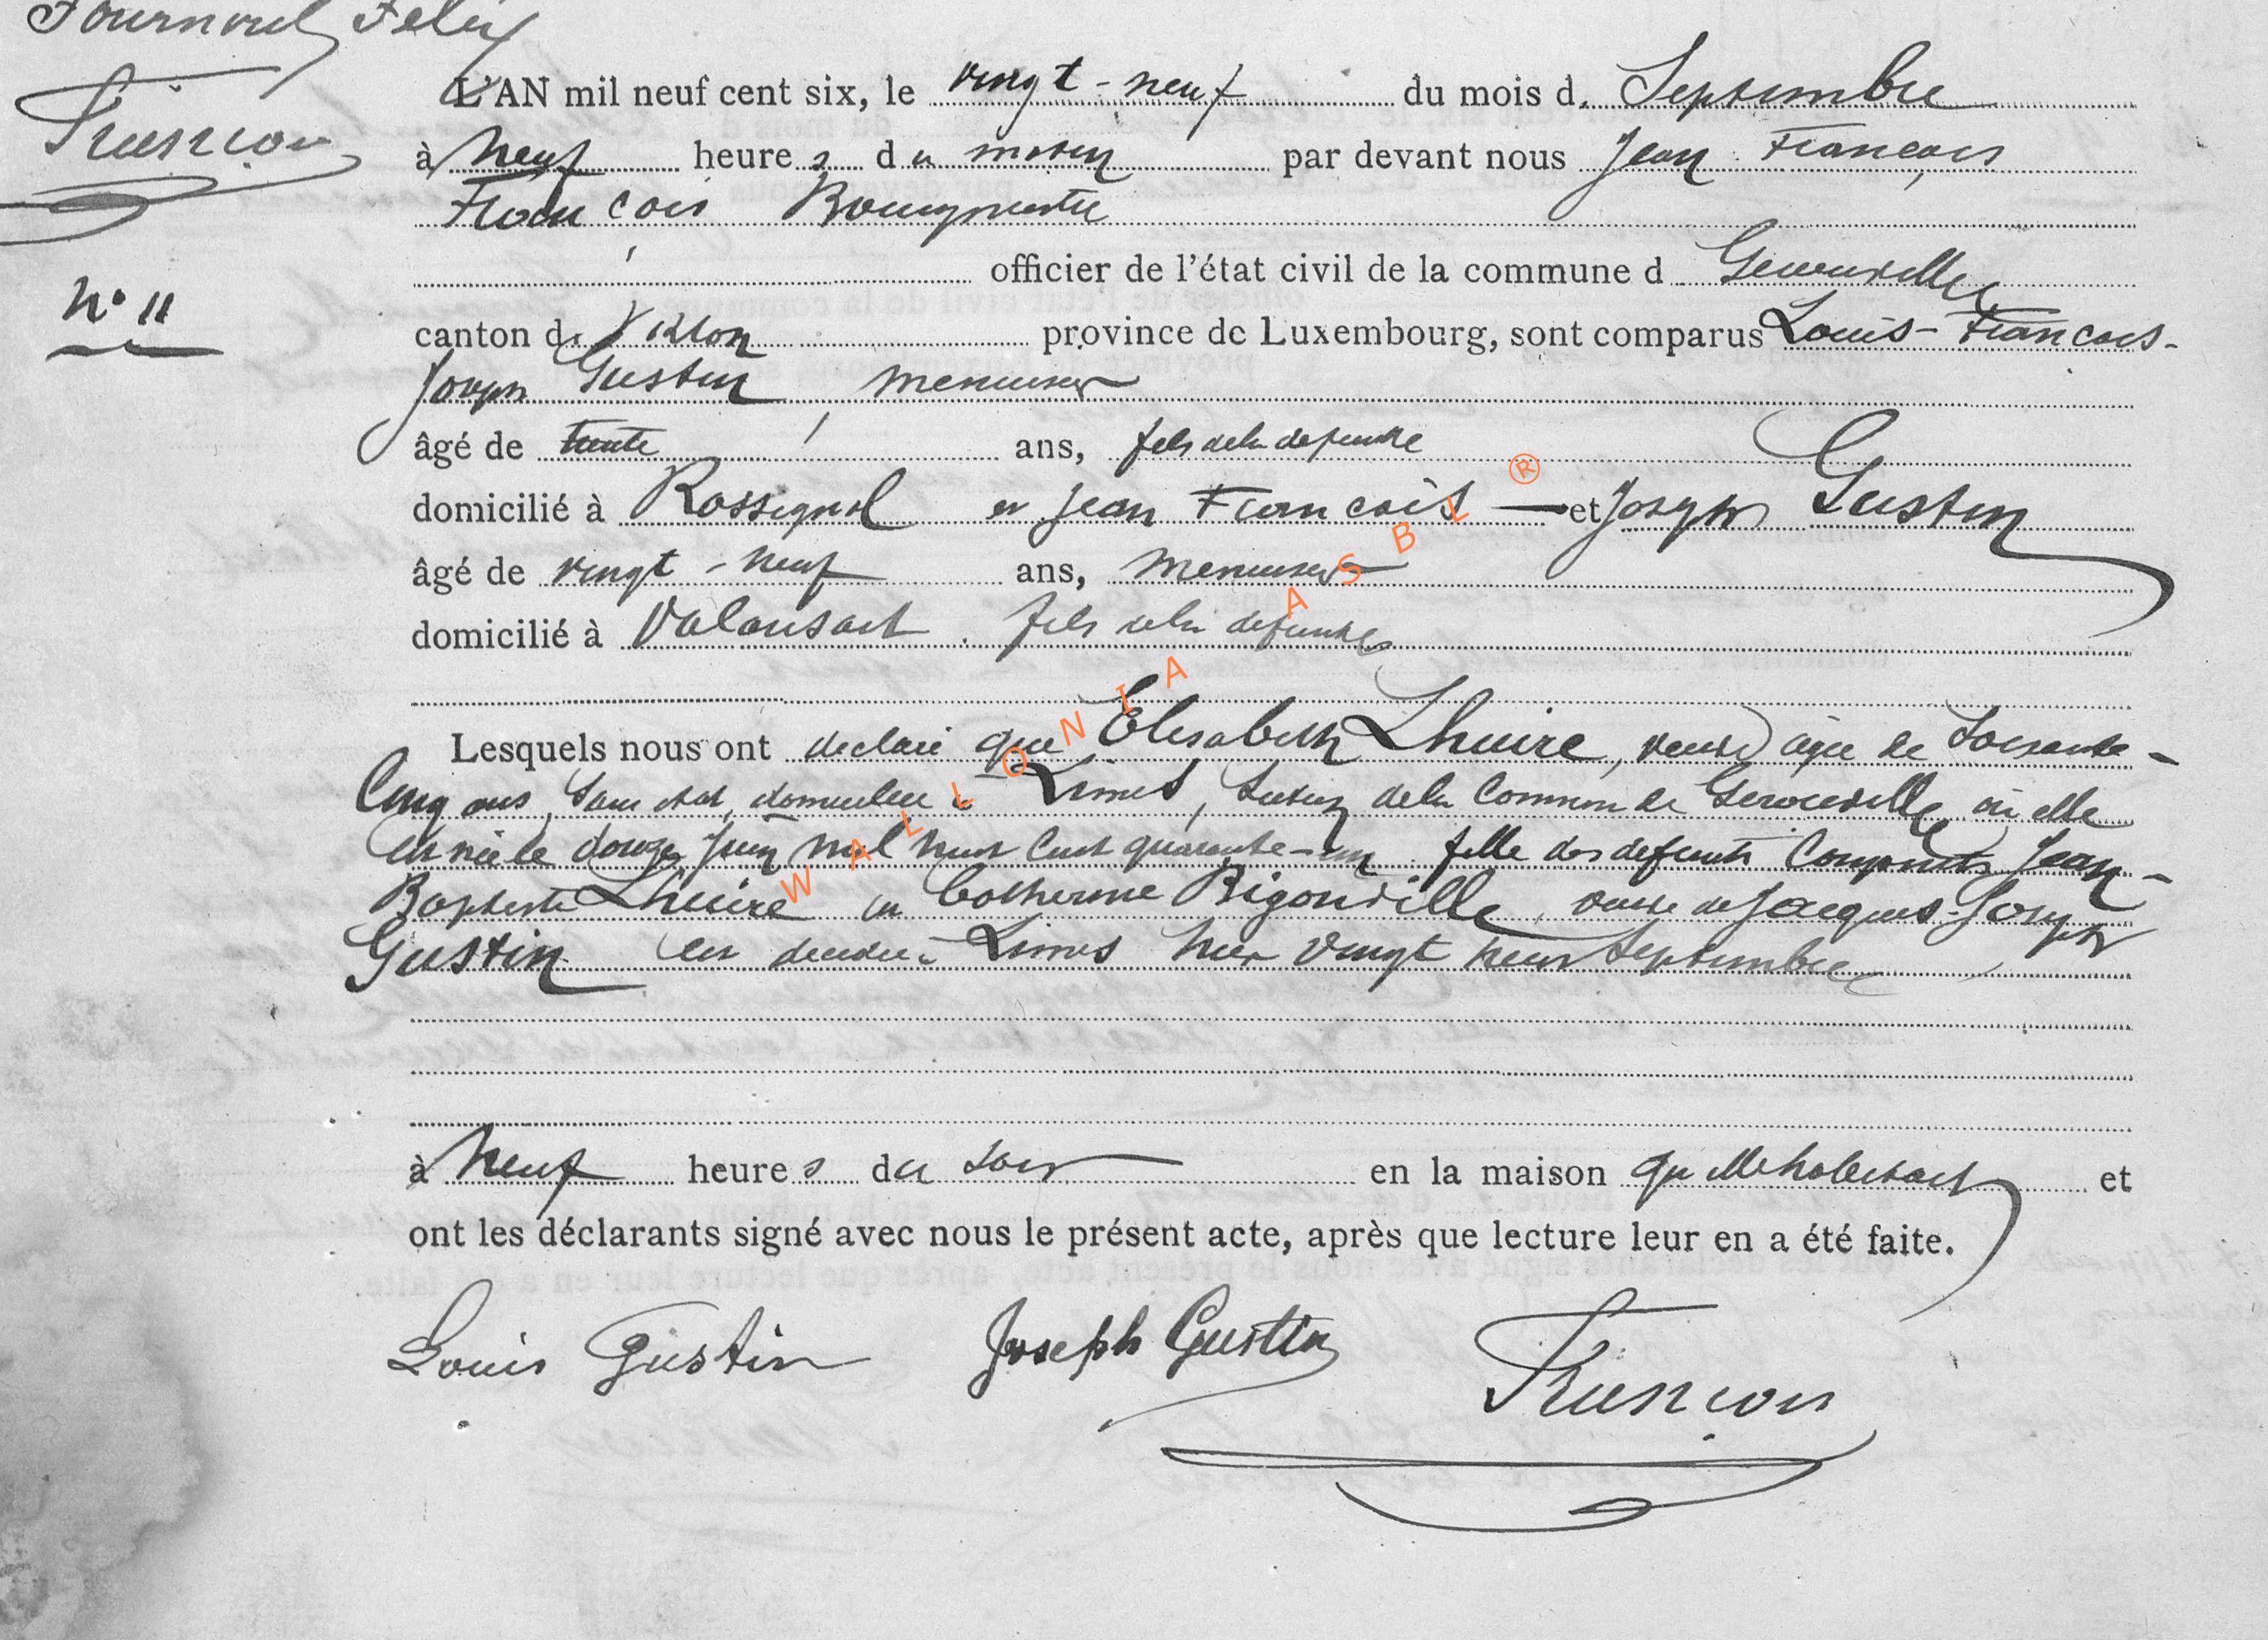 Fournoul Felix
François
N° 11
L'AN mil neuf cent six, le vingt-neuf du mois d. Septembre
à neuf heures du matin par devant nous Jean François
François Bourgmestre
officier de l'état civil de la commune d Gerouville
canton de Virton province de Luxembourg, sont comparus Louis-François-
Joseph Gustin, menuisier
âgé de trente ans, fils de la defunte
domicilié à Rossignol et Jean François — et Joseph Gustin
âgé de vingt-neuf ans, menuisier
domicilié à Valansart fils de la defunte
Lesquels nous ont declaré que Elisabeth Lhuire, veuve agée de Soixante-
Cinq ans, Sans etat, domiciliée à Limes, Section de la Commune de Gerouville où elle
est née le douze Juin mil huit Cent quarante-un fille des defunts Conjoints Jean-
Baptiste Lhuire et Catherine Bigonville, veuve de Jacques-Joseph
Gustin est decedée à Limes hier vingt neuf Septembre
à Neuf heures du soir en la maison qu'elle habitait et
ont les déclarants signé avec nous le présent acte, après que lecture leur en a été faite.
Louis Gustin Joseph Gustin François
WALLONIA ASBL ®